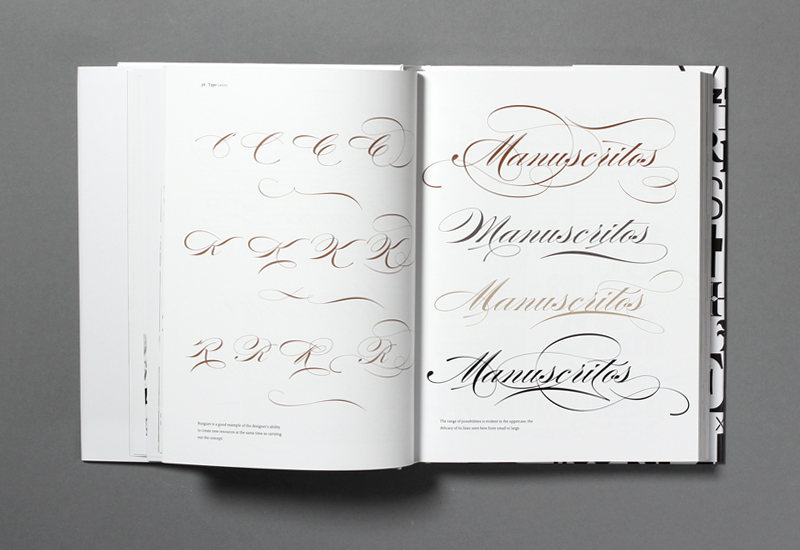 C C C C
K K K K
R R R R
is a good example of the designer's ability
to create new resources at the same time as carrying
out the concept.
Manuscritos
Manuscritos
Manuscritos
Manuscritos
The range of possibilities is evident in the uppercase, the
delicacy of its lines seen here from small to large.